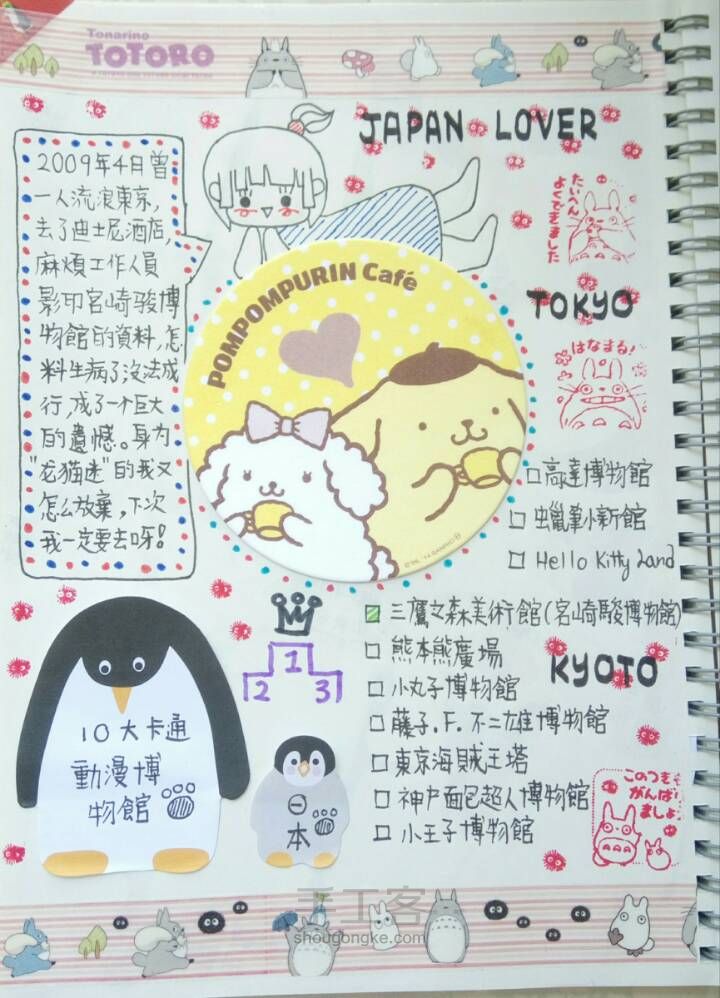 Tonarino
TOTORO
JAPAN LOVER
2009年4日曾
一人流浪東京,
去了迪士尼酒店,
麻煩工作人員
影印宮崎駿博
物館的資料,怎
料生病了沒法成
行,成了一个巨大
的遺憾。身为
"龙猫迷"的我又
怎么放棄,下次
我一定要去呀!
POMPOMPURIN Café
たいへん
よくできました
TOKYO
はなまる!
□高達博物館
□蠟筆小新館
□ Hello Kitty Land
三鷹之森美術館(宮崎駿博物館)
□ 熊本熊廣場
□ 小丸子博物館
□ 藤子.F.不二雄博物館
□ 東京海賊王塔
□ 神戶面包超人博物館
□ 小王子博物館
KYOTO
1
2 3
10大卡通
動漫博
物館
日
本
このつぎも
がんばり
ましょう
手工客
shougongke.com